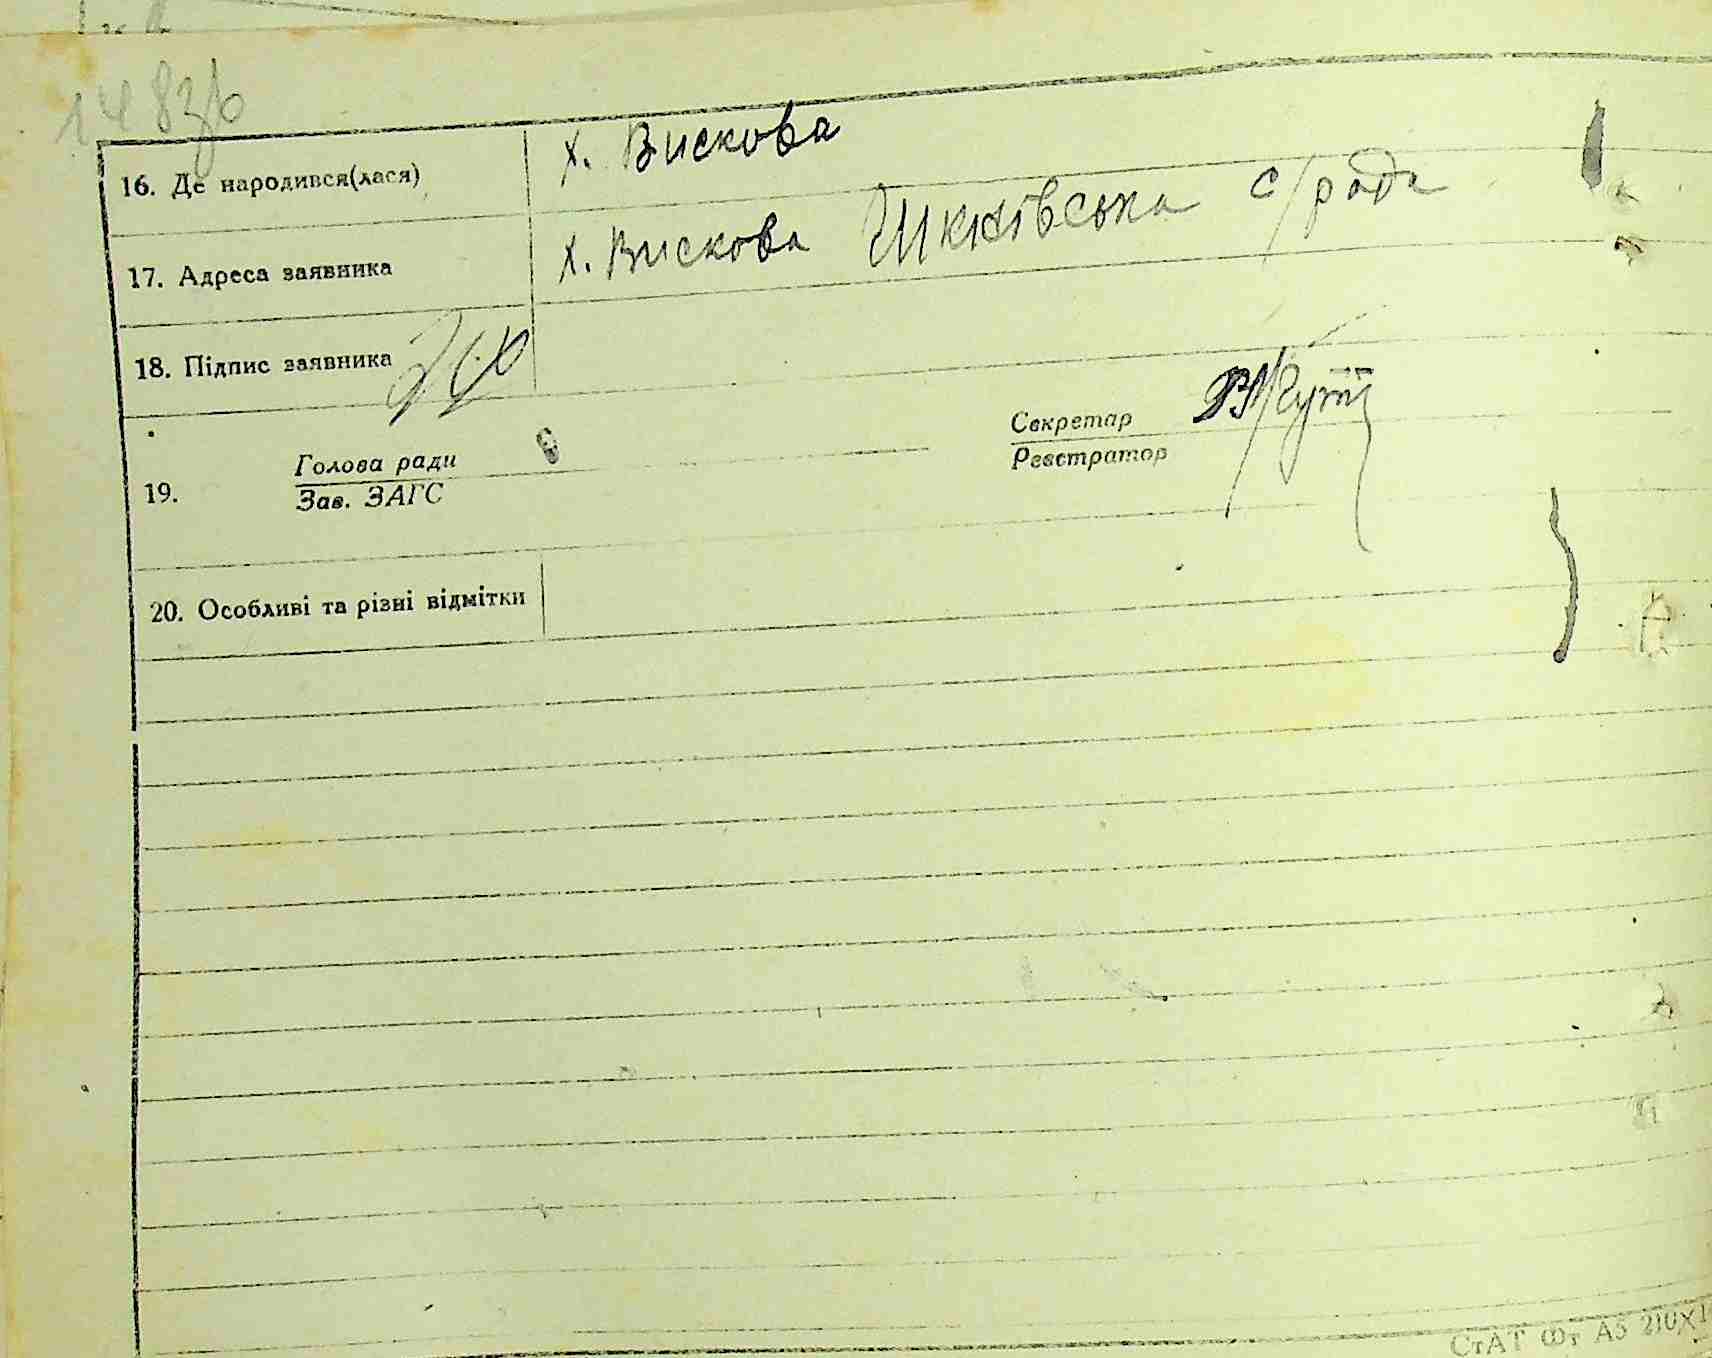 148зв
16. Де народився(лася) х. Вискова
17. Адреса заявника х. Вискова с/рада
18. Підпис заявника
Голова ради
Секретар
19.
Зав. ЗАГС
Реєстратор
20. Особливі та різні відмітки
СтАТ Фт А5 210Х1